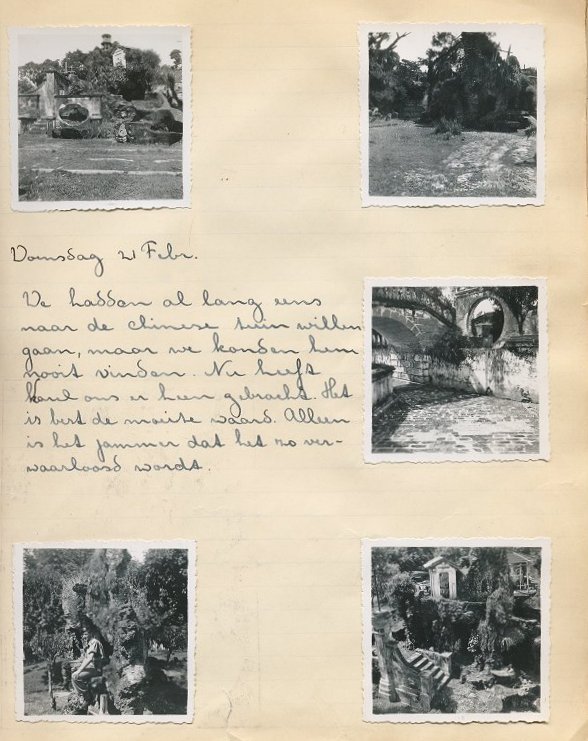 Woensdag 21 Febr.
We hadden al lang eens
naar de chinese tuin willen
gaan, maar we konden hem
nooit vinden. Nu heeft
Karel ons er heen gebracht. Het
is best de moeite waard. Alleen
is het jammer dat het zo ver-
waarloosd wordt.